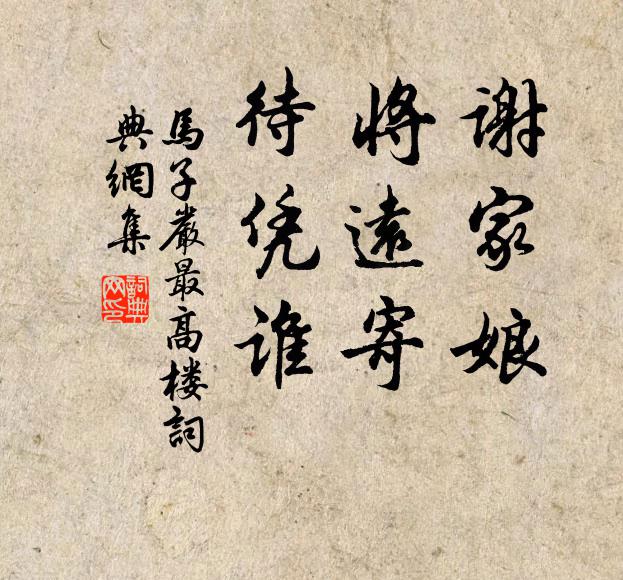 谢家娘
將遠寄
待凭誰
馬子嚴最高楼詞
典網集
詞典
网印